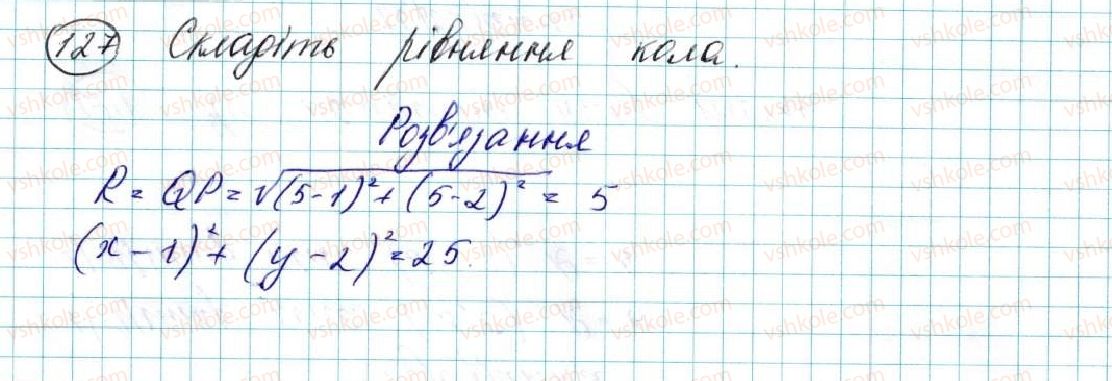 127 Складіть рівняння кола.
Розв'язання
R = QP = √(5-1)² + (5-2)² = 5
(x-1)² + (y-2)² = 25.